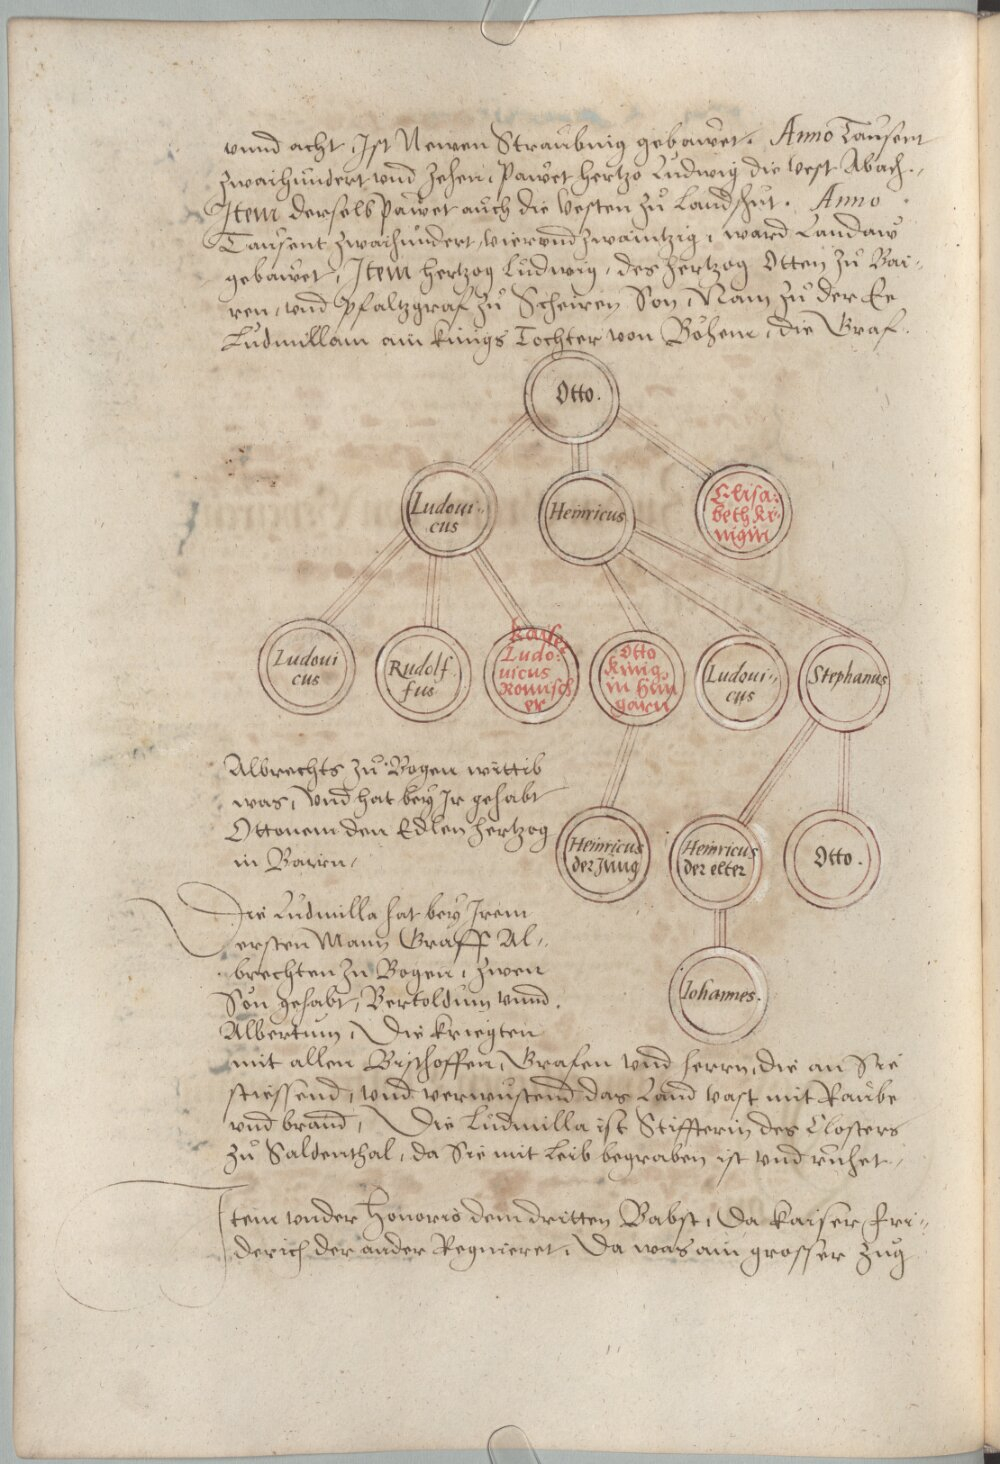 vnnd acht, Ist Newen Straubing gebawet. Anno Tausent
zwaihundert vnd zehen, Pawet hertzo Ludwig die Vest Abach.
Item derselb Pawet auch die Vesten zů Landshůt. Anno
Tausent zwaihundert, vierundzwaintzig, ward Landaw
gebawet, Item hertzog Ludwig, des hertzog Otten zů Bai-
ren, vnd Pfaltzgraf zů Scheiren Son, Nam zů der Ee
Ludmillam ain künigs Tochter von Böhem, die Graf
Otto.
Ludoui-
cus
Heinricus
Elisa-
beth Kü-
nigin
Ludoui
cus
Rudolf
fus
Kaiser
Ludo-
uicus
Römisch
er
Otto
Künig
in Hun
garn
Ludoui-
cus
Stephanus
Albrechts zů Bogen wittib
was, Vnd hat bey Ir gehabt
Ottonem den Edlen hertzog
in Bairn,
Heinricus
der Jung
Heinricus
der elter
Otto.
Die Ludmilla hat bey Irem
ersten Mann Graff Al-
brechten zu Bogen, zwen
Sön gehabt, Bertoldum vnnd
Albertum, Die kriegten
Iohannes.
mit allen Bischoffen, Grafen vnd herrn, die an Sie
stiessend, vnd verwüstend das Land vast mit Raube
vnd brand, Die Ludmilla ist Stiffterin des Closters
zů Saldenthal, da Sie mit Leib begraben ist vnd růhet,
Item vnder Honorio dem dritten Babst, Da kaiser Fri-
derich der ander Regnieret, Da was ain grosser Zug